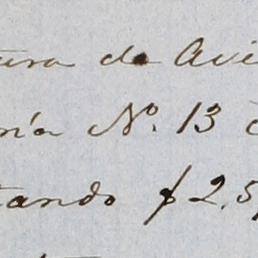 tura de Avi
nía Nº. 13
tando $2.5